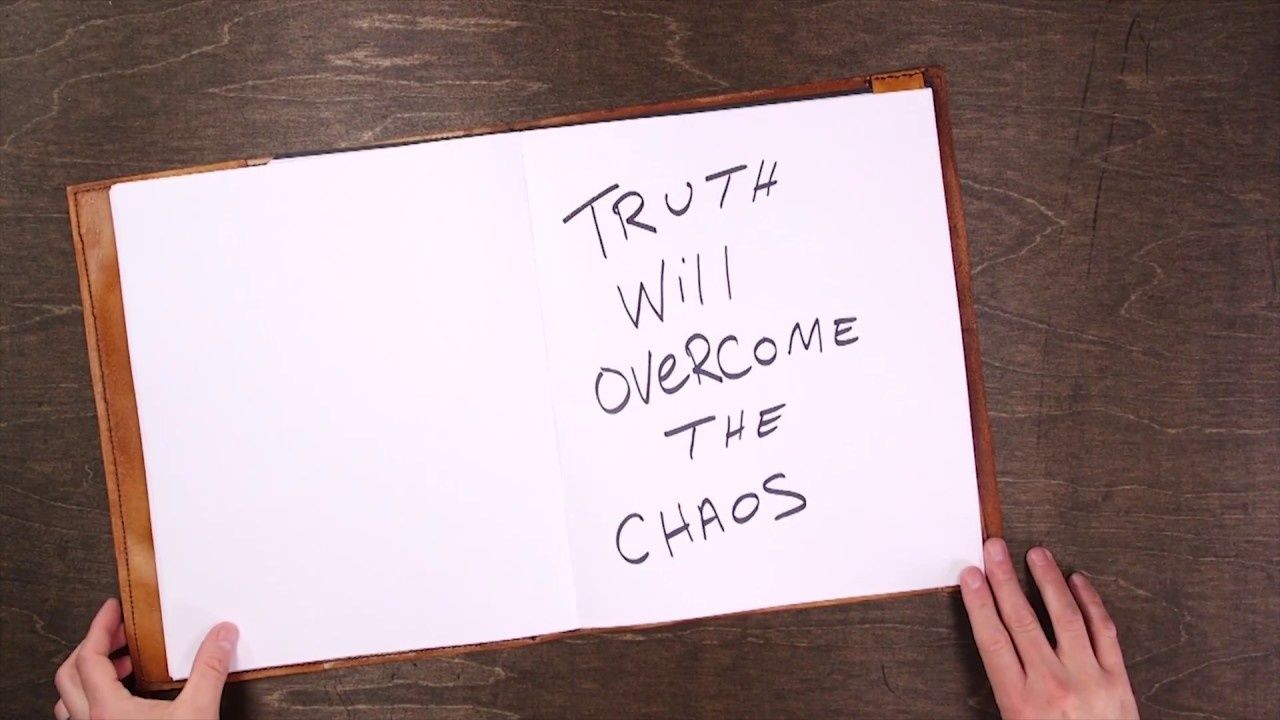 TRUTH
Will
OVeRCOME
THE
CHAOS